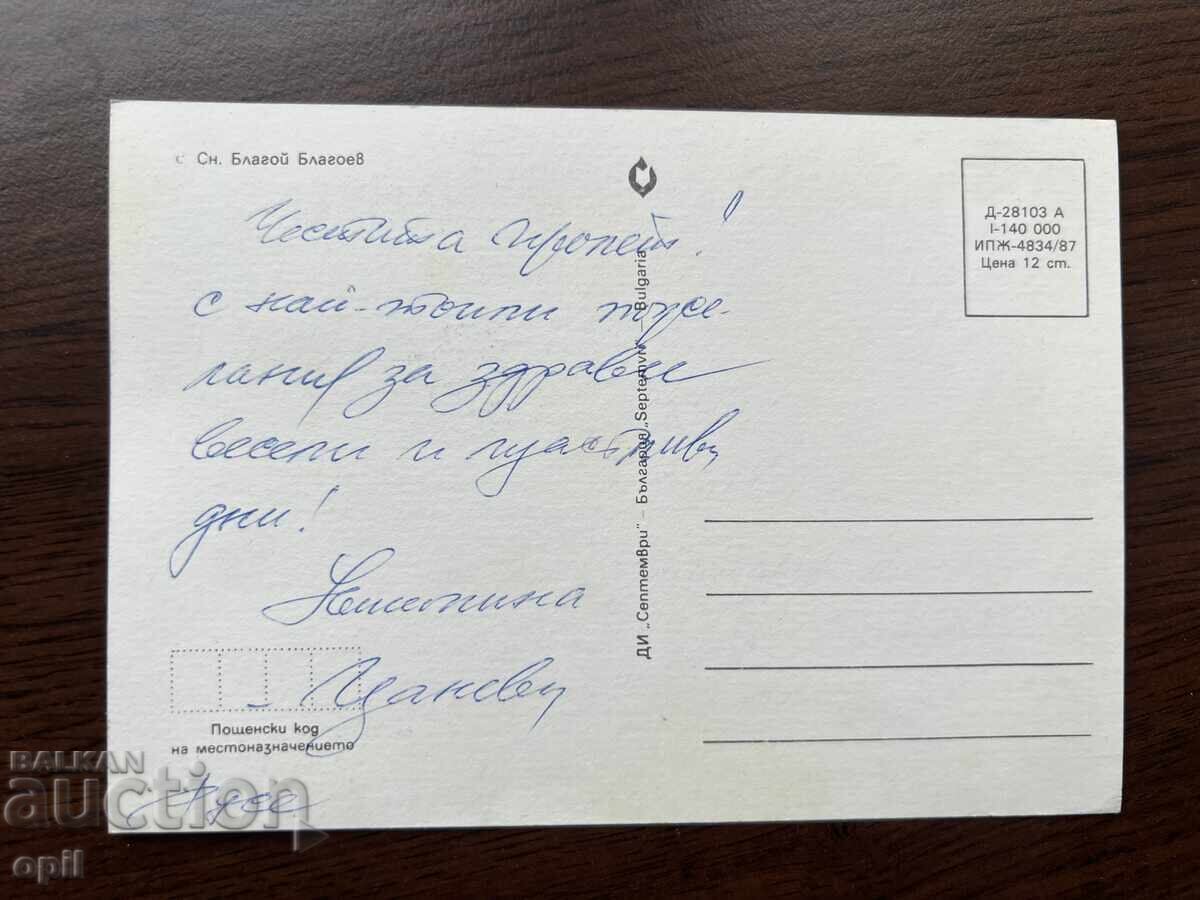 с Сн. Благой Благоев
Честита пролет!
с най-топли поже-
лания за здрави
весели и щастливи
дни!
Цаневи
Русе
Пощенски код
на местоназначението
ДИ „Септември" – България „Septemvri" – Bulgaria
Д-28103 А
I-140 000
ИПЖ-4834/87
Цена 12 ст.
BALKAN
auction
opil